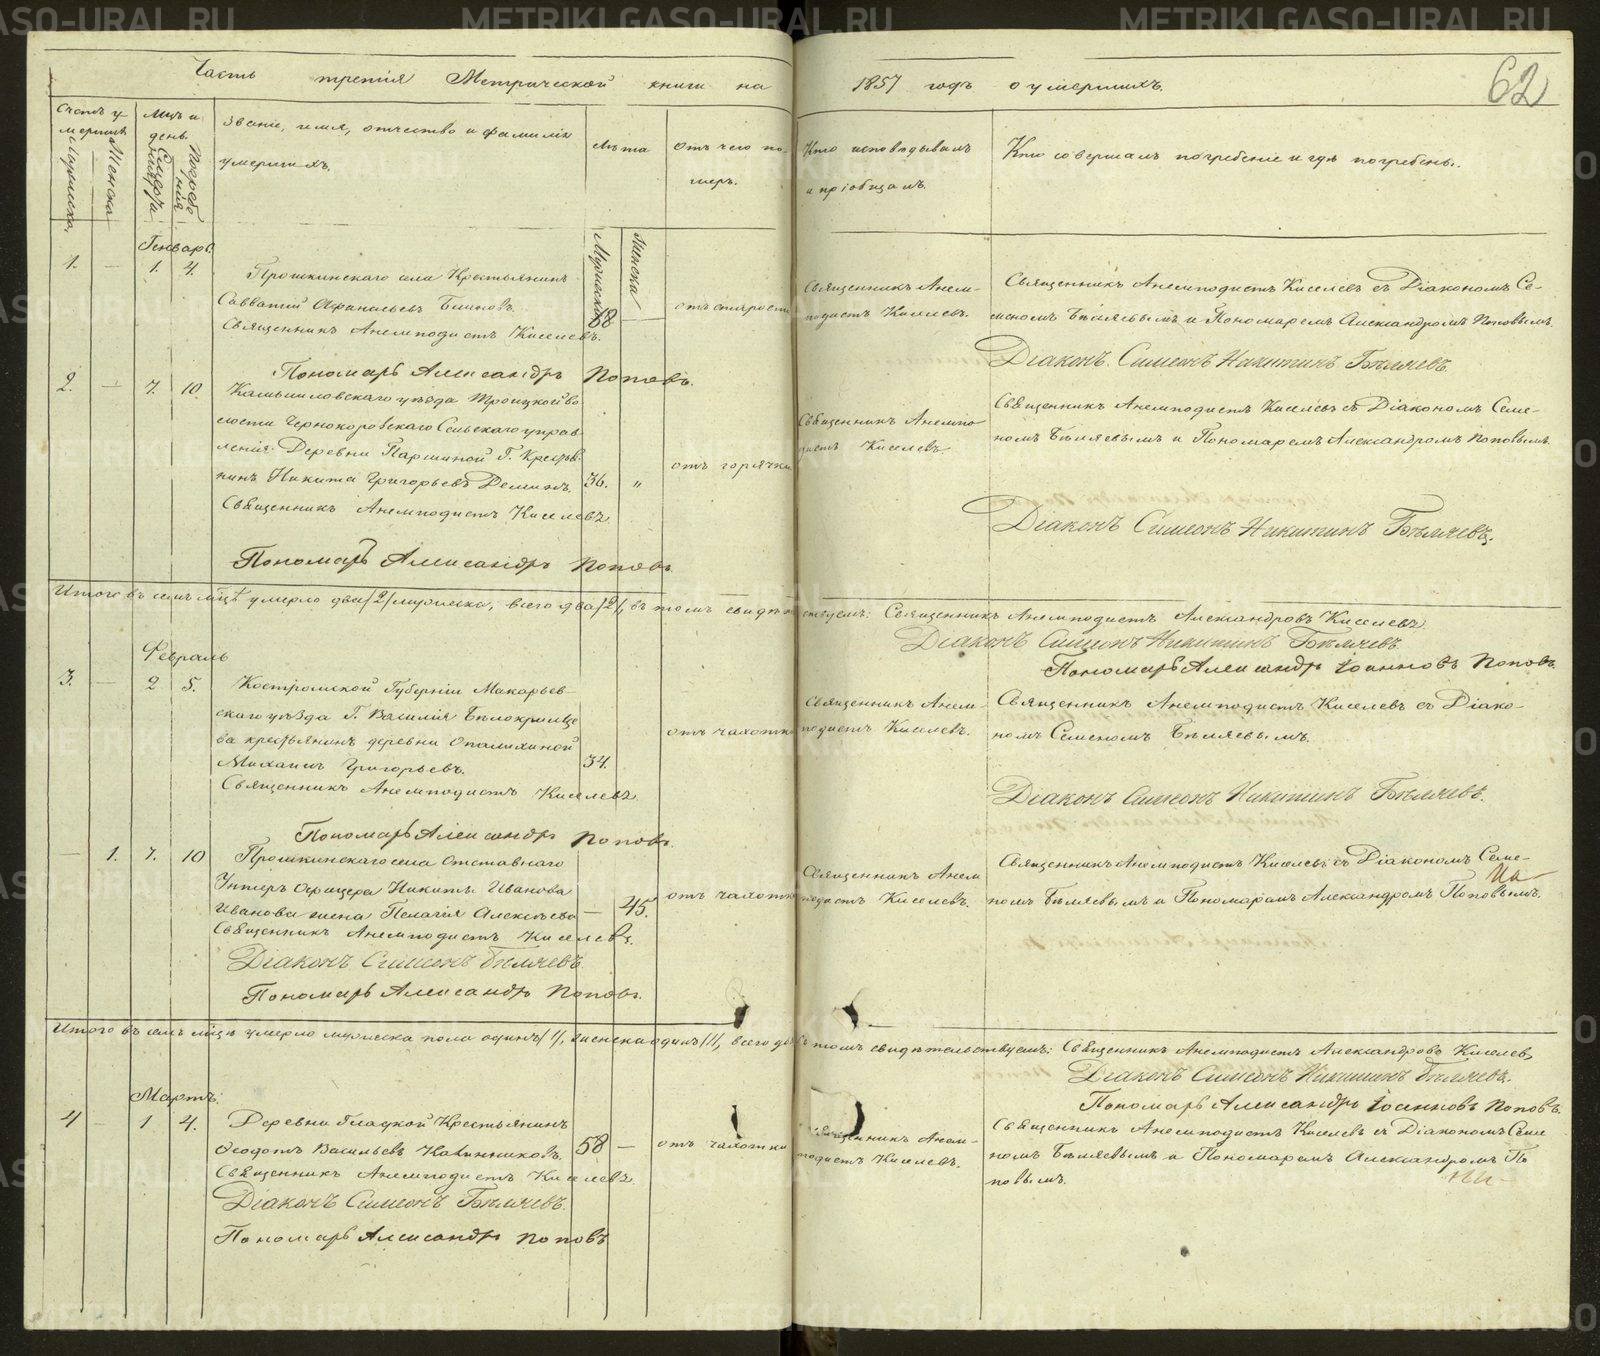 METRIKI.GASO-URAL.RU
Часть третія Метрической книги на 1857 годъ о умершихъ.
62
Счетъ умершихъ
Мужеска.
Женска
Мцъ и день.
Смерти
Погребенія
Званіе, имя, отчество и фамилія
умершихъ.
Лѣта
Мужеска
Женска
Отъ чего по-
меръ.
Кто исповѣдывалъ
и пріобщалъ.
Кто совершалъ погребеніе и гдѣ погребены.
Генварь.
1. — 1. 4.
Прошкинскаго села Крестьянинъ
Савватій Афанасьевъ Блиновъ.
68 —
отъ старости
Священникъ Анемподистъ Киселевъ.
Пономарь Александръ Поповъ.
Священникъ Анем-
подистъ Киселевъ.
Священникъ Анемподистъ Киселевъ съ Діакономъ Се-
меномъ Бѣляевымъ и Пономаремъ Александромъ Поповымъ.
Діаконъ Симеонъ Никитинъ Бѣляевъ.
2. — 7. 10.
Камышловскаго уѣзда Троицкой во-
лости Чернокоровскаго Сельскаго управ-
ленія Деревни Паршиной Г. Крестья-
нинъ Никита Григорьевъ Деминъ.
36. „
отъ горячки
Священникъ Анемподистъ Киселевъ
Пономарь Александръ Поповъ
Священникъ Анемпо-
дистъ Киселевъ.
Священникъ Анемподистъ Киселевъ съ Діакономъ Семе-
номъ Бѣляевымъ и Пономаремъ Александромъ Поповымъ.
Діаконъ Симеонъ Никитинъ Бѣляевъ.
Итого въ семъ мцѣ умерло два /2/ мужеска, всего два /2/, въ томъ свидѣтельствуемъ: Священникъ Анемподистъ Александровъ Киселевъ
Діаконъ Симеонъ Никитинъ Бѣляевъ.
Пономарь Александръ Іоанновъ Поповъ.
Февраль
3. — 2 5.
Костромской Губерніи Макарьев-
скаго уѣзда Г. Василія Бѣлокрыльце-
ва крестьянинъ деревни Опалихиной
Михаилъ Григорьевъ.
34.
отъ чахотки
Священникъ Анемподистъ Киселевъ
Пономарь Александръ Поповъ.
Священникъ Анем-
подистъ Киселевъ.
Священникъ Анемподистъ Киселевъ съ Діако-
номъ Семеномъ Бѣляевымъ.
Діаконъ Симеонъ Никитинъ Бѣляевъ.
— 1. 7. 10
Прошкинскаго села Отставнаго
Унтеръ Офицера Никиты Иванова
Иванова жена Пелагія Алексѣева
— 45.
отъ чахотки
Священникъ Анемподистъ Киселевъ.
Діаконъ Симеонъ Бѣляевъ
Пономарь Александръ Поповъ.
Священникъ Анем
подистъ Киселевъ.
Священникъ Анемподистъ Киселевъ съ Діакономъ Семе-
номъ Бѣляевымъ и Пономаремъ Александромъ Поповымъ.
Итого въ семъ мцѣ умерло мужеска пола одинъ /1/, женска одинъ /1/, всего два въ томъ свидѣтельствуемъ: Священникъ Анемподистъ Александровъ Киселевъ
Діаконъ Симеонъ Никитинъ Бѣляевъ.
Пономарь Александръ Іоанновъ Поповъ.
Мартъ.
4 — 1 4.
Деревни Гладкой Крестьянинъ
Ѳеодотъ Васильевъ Калинниковъ.
58 —
отъ чахотки
Священникъ Анемподистъ Киселевъ.
Діаконъ Симеонъ Бѣляевъ.
Пономарь Александръ Поповъ
Священникъ Анем-
подистъ Киселевъ.
Священникъ Анемподистъ Киселевъ съ Діакономъ Семе
номъ Бѣляевымъ и Пономаремъ Александромъ По
повымъ.